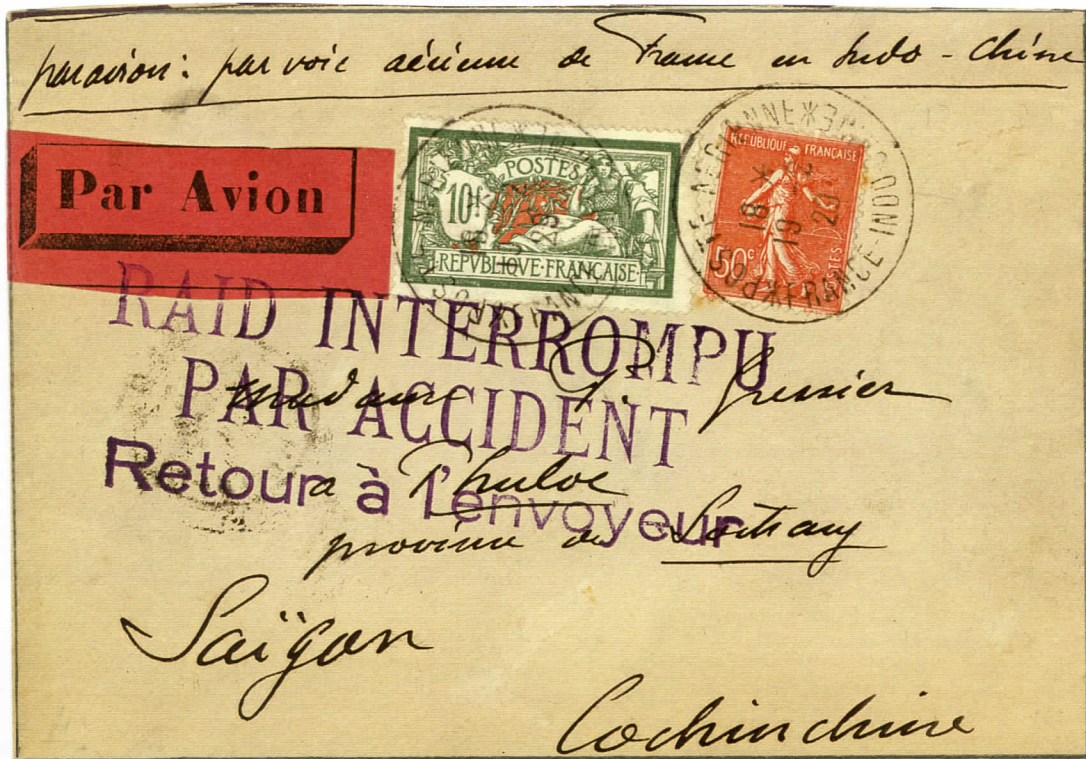 par avion : par voie aérienne de France en Indo-Chine
Par Avion
10f
POSTES
REPVBLIQVE·FRANÇAISE
REPUBLIQUE FRANÇAISE
50c
POSTES
18
19
FRANCE-INDOCHINE
RAID INTERROMPU
PAR ACCIDENT
Retour à l'envoyeur
Madame P. Grenier
à Phuloc
province de Soctrang
Saïgon
Cochinchine